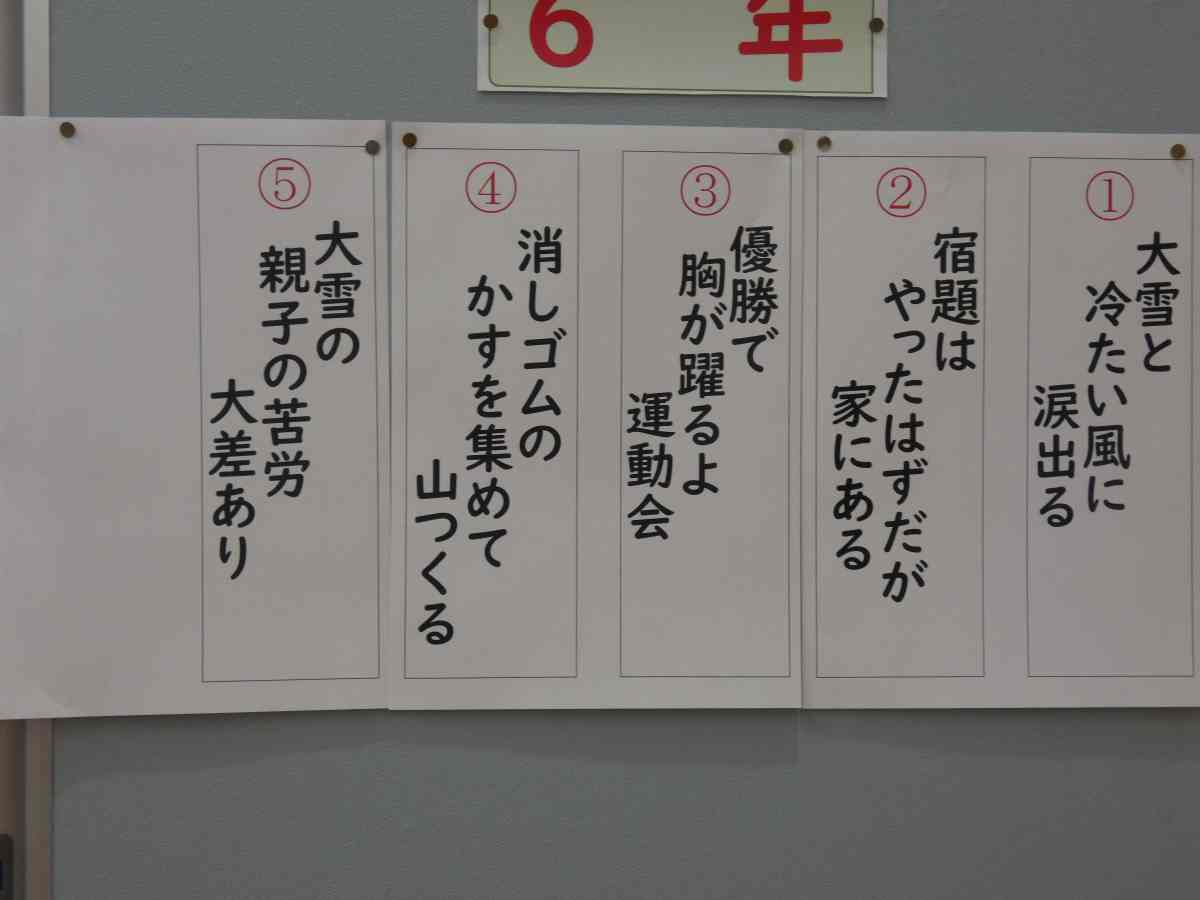 6年
①
大雪と
冷たい風に
涙出る
②
宿題は
やったはずだが
家にある
③
優勝で
胸が躍るよ
運動会
④
消しゴムの
かすを集めて
山つくる
⑤
大雪の
親子の苦労
大差あり